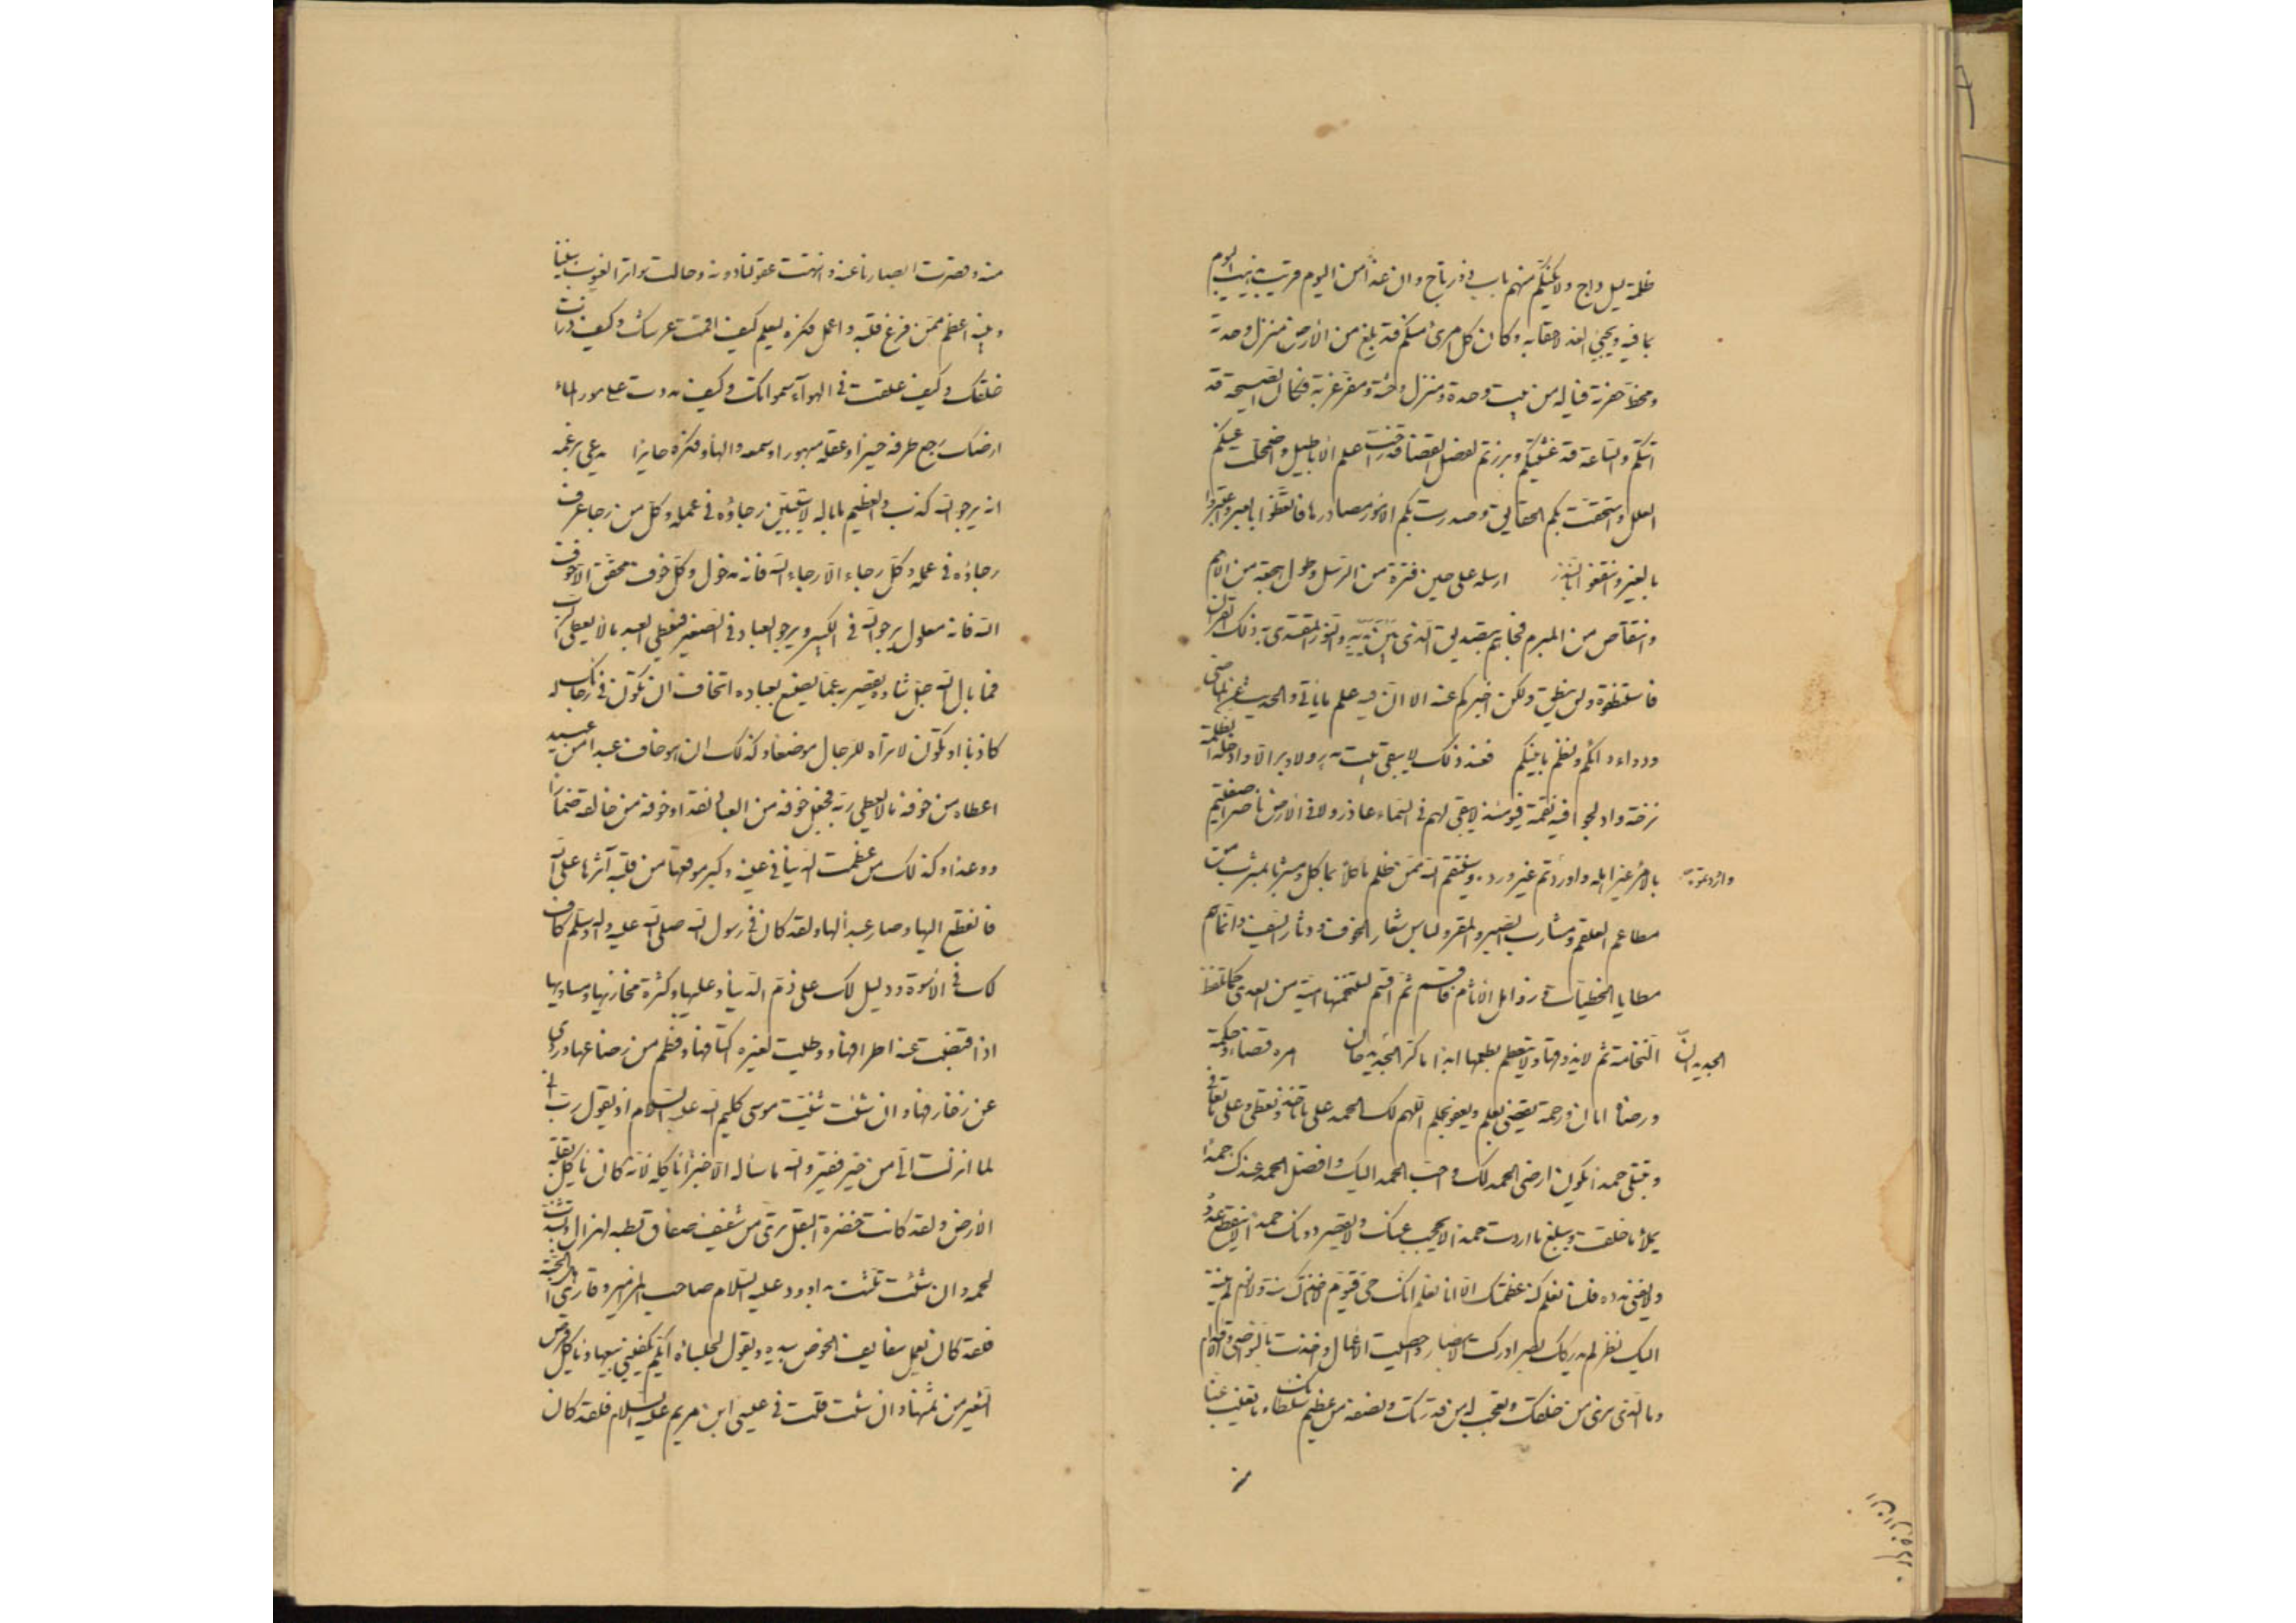 ظلمة ليل داج ولا يكنّكم منهم باب ذو رتاج وان غداً من اليوم قريب يذهب اليوم
بما فيه ويجيئ الغد لاحقا به وكان كل امرئ منكم قد بلغ من الأرض منزل وحدته
ومخط حفرته فيا له من بيت وحدة ومنزل وحشة ومفرد غربة فكان الصيحة قد
اتتكم والساعة قد غشيتكم وبرزتم لفصل القضاء قد زاحت عنكم الاباطيل واضمحلت عنكم
العلل واستحقت بكم الحقايق وصدرت بكم الامور مصادرها فاتعظوا بالعبر واعتبروا
بالغير وانتفعوا بالنذر ارسله على حين فترة من الرسل وطول هجعة من الامم
وانتقاض من المبرم فجاءهم بتصديق الذى بين يديه والنور المقتدى به ذلك القرآن
فاستنطقوه ولن ينطق ولكن اخبركم عنه الا ان فيه علم ما يأتى والحديث عن الماضى
ودواء دائكم ونظم ما بينكم فعند ذلك لا يبقى بيت مدر ولا وبر الا وادخله الظلمة
ترحة واولجوا فيه نقمة فيومئذ لا يبقى لهم فى السماء عاذر ولا فى الأرض ناصر اصفيتم
بالامر غير اهله واوردتم غير ورده وسينتقم الله ممن ظلم مأكلا بمأكل ومشربا بمشرب من
مطاعم العلقم ومشارب الصبر والمقر ولباس شعار الخوف ودثار السيف وانما هم
مطايا الخطيئات وزوامل الاثام فاقسم ثم اقسم لتنخمنها امية من بعدى كما تلفظ
الجديدان
النخامة ثم لا تذوقها ولا تتطعم بطعمها ابدا ما كر الجديدان امره قضاء وحكمة
ورضاه امان ورحمة يقضى بعلم ويعفو بحلم اللهم لك الحمد على ما تأخذ وتعطى وعلى ما تعافى
وتبتلى حمدا يكون ارضى الحمد لك واحب الحمد اليك وافضل الحمد عندك حمدا
يملأ ما خلقت ويبلغ ما اردت حمدا لا يحجب عنك ولا يقصر دونك حمدا لا ينقطع عدده
ولا يفنى مدده فلسنا نعلم كنه عظمتك الا انا نعلم انك حى قيوم لا تأخذك سنة ولا نوم لم ينته
اليك نظر لم يدركك بصر ادركت الابصار واحصيت الاعمال واخذت بالنواصى والاقدام
وما الذى نرى من خلقك ونعجب له من قدرتك ونصفه من عظيم سلطانك وما تغيب عنا
منه
منه وقصرت ابصارنا عنه وانتهت عقولنا دونه وحالت سواتر الغيوب بيننا
وبينه اعظم فمن فرغ قلبه واعمل فكره ليعلم كيف اقمت عرشك وكيف ذرات
خلقك وكيف علقت فى الهوآء سمواتك وكيف مددت على مور الماء
ارضك رجع طرفه حسيرا وعقله مبهورا وسمعه والها وفكره حايرا يدعى بزعمه
انه يرجو الله كذب والعظيم ما باله لا يتبين رجاؤه فى عمله وكل من رجا عرف
رجاؤه فى عمله وكل رجاء الا رجاء الله فانه مدخول وكل خوف محقق الا خوف
الله فانه معلول يرجو الله فى الكبير ويرجو العباد فى الصغير فيعطى العبد ما لا يعطى الرب
فما بال الله جل ثناؤه يقصر به عما يصنع بعباده اتخاف ان تكون فى رجائك له
كاذبا او تكون لا تراه للرجاء موضعا وكذلك ان هو خاف عبدا من عبيده
اعطاه من خوفه ما لا يعطى ربه فجعل خوفه من العباد نقدا وخوفه من خالقه ضمارا
ووعدا وكذلك من عظمت الدنيا فى عينه وكبر موقعها من قلبه آثرها على الله
فانقطع اليها وصار عبدا لها ولقد كان فى رسول الله صلى الله عليه وآله وسلم كاف
لك فى الأسوة ودليل لك على ذم الدنيا وعيبها وكثرة مخازيها ومساويها
اذا قبضت عنه اطرافها ووطئت لغيره اكنافها وفطم من رضاعها وزوى
عن زخارفها وان شئت ثنيت موسى كليم الله عليه السلام اذ يقول رب انى
لما انزلت الى من خير فقير والله ما سأله الا خبزا يأكله لانه كان يأكل بقلة
الأرض ولقد كانت خضرة البقل ترى من شفيف صفاق بطنه لهزاله وتشذب
لحمه وان شئت ثلثت بداود عليه السلام صاحب المزامير وقارئ اهل الجنة
فلقد كان يعمل سفايف الخوص بيده ويقول لجلسائه ايكم يكفينى بيعها ويأكل قرص
الشعير من ثمنها وان شئت قلت فى عيسى ابن مريم عليه السلام فلقد كان